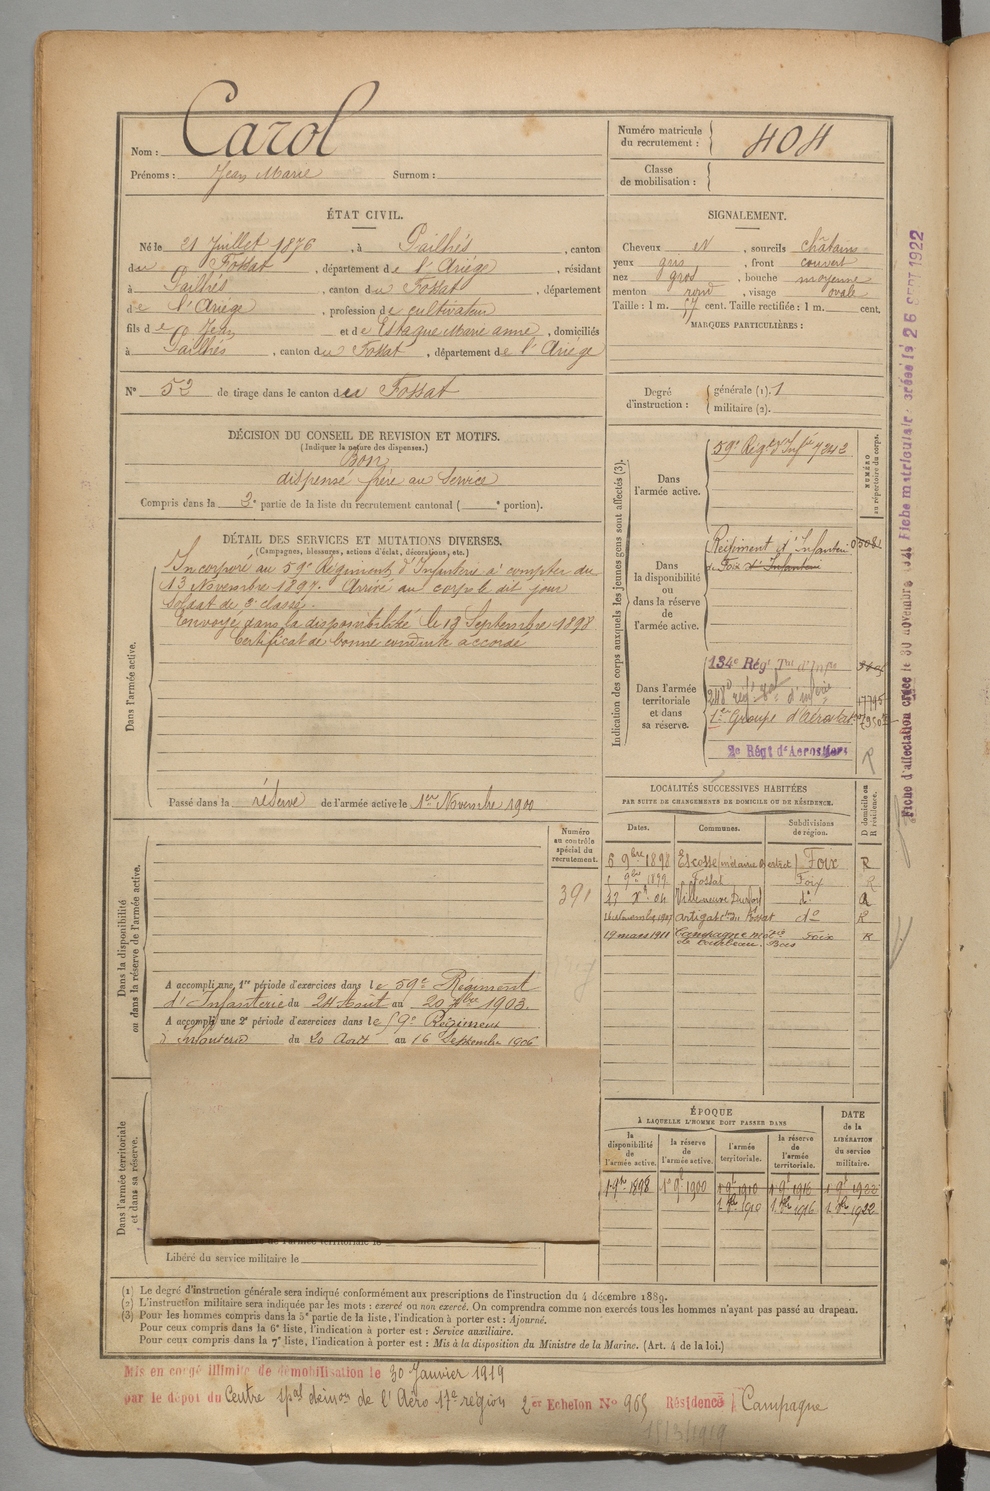 Nom : Carol
Prénoms : Jean Marie Surnom :
Numéro matricule du recrutement : 404
Classe de mobilisation :
ÉTAT CIVIL.
Né le 21 Juillet 1876, à Pailhés, canton
du Fossat, département de l'Ariége, résidant
à Pailhés, canton du Fossat, département
de l'Ariége, profession de cultivateur
fils de Jean et de Estaque Marie anne, domiciliés
à Pailhés, canton du Fossat, département de l'Ariége
N° 52 de tirage dans le canton du Fossat
SIGNALEMENT.
Cheveux et, sourcils châtains
yeux gris, front couvert
nez gros, bouche moyenne
menton rond, visage ovale
Taille : 1 m. 57 cent. Taille rectifiée : 1 m. cent.
MARQUES PARTICULIÈRES :
Degré d'instruction : générale (1). 1
militaire (2).
DÉCISION DU CONSEIL DE REVISION ET MOTIFS.
(Indiquer la nature des dispenses.)
Bon
dispensé frère au service
Compris dans la 3e partie de la liste du recrutement cantonal ( e portion).
DÉTAIL DES SERVICES ET MUTATIONS DIVERSES.
(Campagnes, blessures, actions d'éclat, décorations, etc.)
Dans l'armée active.
Incorporé au 59e Régiment d'Infanterie à compter du
13 Novembre 1897. Arrivé au corps le dit jour
soldat de 2e classe.
Envoyé dans la disponibilité le 13 Septembre 1898
Certificat de bonne conduite accordé
Passé dans la réserve de l'armée active le 1er Novembre 1900
Indication des corps auxquels les jeunes gens sont affectés (3).
NUMÉRO au répertoire du corps.
Dans l'armée active.
59e Régt d'Infie 7242
Dans la disponibilité ou dans la réserve de l'armée active.
Régiment d'Infanterie
de Foix d'Infanterie
Dans l'armée territoriale et dans sa réserve.
134e Régt Tal d'Infie
1er Groupe d'aérostat
2e Régt d'Aerostiers
R
LOCALITÉS SUCCESSIVES HABITÉES
PAR SUITE DE CHANGEMENTS DE DOMICILE OU DE RÉSIDENCE.
Dates. Communes. Subdivisions de région. D domicile ou R résidence.
6 9bre 1898 Escosse Foix R
1 9bre 1899 Fossat Foix R
27 Xbre 04 Villeneuve Durfort do R
novembre 1907 Artigat Con du Fossat do R
19 mars 1911 Campagne Foix R
Dans la disponibilité ou dans la réserve de l'armée active.
Numéro au contrôle spécial du recrutement.
391
A accompli une 1re période d'exercices dans le 59e Régiment
d'Infanterie du 24 Août au 20 7bre 1903.
A accompli une 2e période d'exercices dans le 59e Régiment
d'Infanterie du 20 Août au 16 Septembre 1906
Dans l'armée territoriale et dans sa réserve.
Libéré du service militaire le
ÉPOQUE
À LAQUELLE L'HOMME DOIT PASSER DANS
la disponibilité de l'armée active.
la réserve de l'armée active.
l'armée territoriale.
la réserve de l'armée territoriale.
DATE de la LIBÉRATION du service militaire.
1 9bre 1898 1er 9bre 1900 1 9bre 1910 1 9bre 1916 1 9bre 1922
1 8bre 1910 1 8bre 1916 1 8bre 1922
(1) Le degré d'instruction générale sera indiqué conformément aux prescriptions de l'instruction du 4 décembre 1889.
(2) L'instruction militaire sera indiquée par les mots : exercé ou non exercé. On comprendra comme non exercés tous les hommes n'ayant pas passé au drapeau.
(3) Pour les hommes compris dans la 5e partie de la liste, l'indication à porter est : Ajourné.
Pour ceux compris dans la 6e liste, l'indication à porter est : Service auxiliaire.
Pour ceux compris dans la 7e liste, l'indication à porter est : Mis à la disposition du Ministre de la Marine. (Art. 4 de la loi.)
Mis en congé illimité de démobilisation le 30 Janvier 1919
par le dépôt du Centre spal démon de l'Aéro 17e région 2er Echelon N° 965 Résidence Campagne
18/3/1919
Fiche d'affectation créée le 30 novembre 1921 Fiche matriculaire créée le 26 SEPT 1922